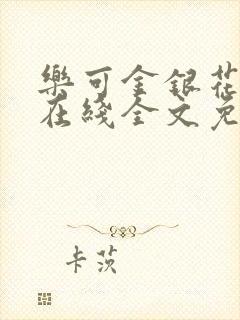 樂可金銀花
在綫全文免
卡茨